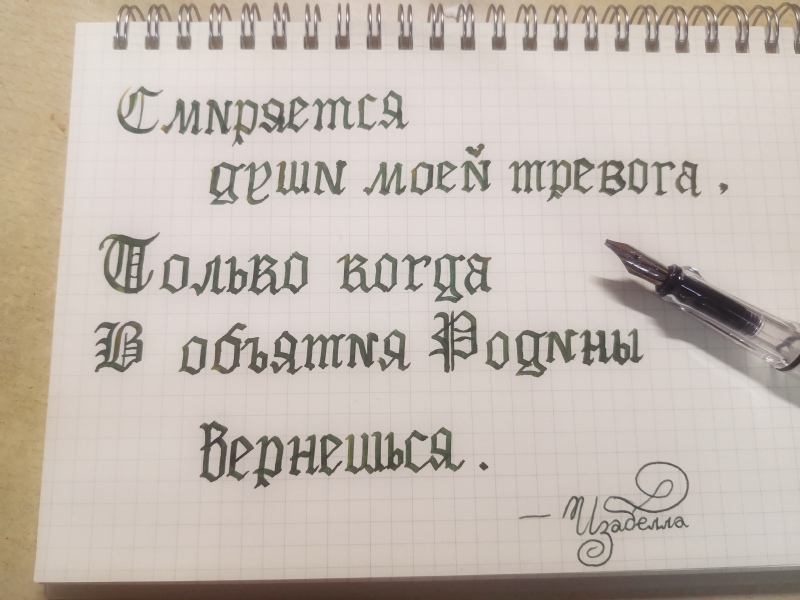 Смиряется
души моей тревога,
Только когда
В объятия Родины
Вернешься.
— Изабелла